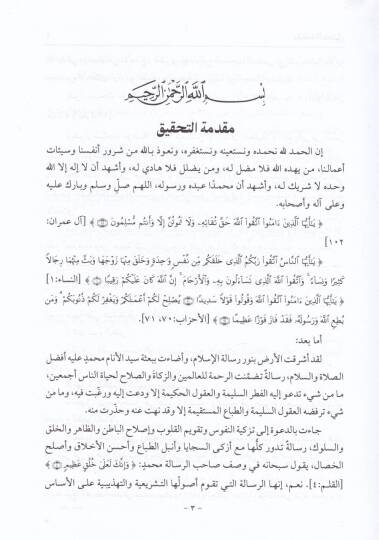 بِسْمِ اللَّهِ الرَّحْمَنِ الرَّحِيمِ
مقدمة التحقيق
إن الحمد لله نحمده ونستعينه ونستغفره، ونعوذ بالله من شرور أنفسنا وسيئات
أعمالنا، من يهده الله فلا مضل له، ومن يضلل فلا هادي له، وأشهد أن لا إله إلا الله
وحده لا شريك له، وأشهد أن محمدًا عبده ورسوله، اللهم صلِّ وسلم وبارك عليه
وعلى آله وأصحابه.
﴿ يَٰٓأَيُّهَا ٱلَّذِينَ ءَامَنُوا۟ ٱتَّقُوا۟ ٱللَّهَ حَقَّ تُقَاتِهِۦ وَلَا تَمُوتُنَّ إِلَّا وَأَنتُم مُّسْلِمُونَ ﴾ [آل عمران:
١٠٢]
﴿ يَٰٓأَيُّهَا ٱلنَّاسُ ٱتَّقُوا۟ رَبَّكُمُ ٱلَّذِى خَلَقَكُم مِّن نَّفْسٍ وَٰحِدَةٍ وَخَلَقَ مِنْهَا زَوْجَهَا وَبَثَّ مِنْهُمَا رِجَالًا
كَثِيرًا وَنِسَآءً ۚ وَٱتَّقُوا۟ ٱللَّهَ ٱلَّذِى تَسَآءَلُونَ بِهِۦ وَٱلْأَرْحَامَ ۚ إِنَّ ٱللَّهَ كَانَ عَلَيْكُمْ رَقِيبًا ﴾ [النساء: ١]
﴿ يَٰٓأَيُّهَا ٱلَّذِينَ ءَامَنُوا۟ ٱتَّقُوا۟ ٱللَّهَ وَقُولُوا۟ قَوْلًا سَدِيدًا ۞ يُصْلِحْ لَكُمْ أَعْمَٰلَكُمْ وَيَغْفِرْ لَكُمْ ذُنُوبَكُمْ ۗ وَمَن
يُطِعِ ٱللَّهَ وَرَسُولَهُۥ فَقَدْ فَازَ فَوْزًا عَظِيمًا ﴾ [الأحزاب: ٧٠، ٧١].
أما بعد:
لقد أشرقت الأرض بنور رسالة الإسلام، وأضاءت ببعثة سيد الأنام محمدٍ عليه أفضل
الصلاة والسلام، رسالةٌ تضمَّنت الرحمة للعالمين والزكاة والصلاح لحياة الناس أجمعين،
ما من شيء تدعو إليه الفطر السليمة والعقول الحكيمة إلا ودعت إليه ورغّبت فيه، وما من
شيء ترفضه العقول السليمة والطباع المستقيمة إلا وقد نهت عنه وحذّرت منه.
جاءت بالدعوة إلى تزكية النفوس وتقويم القلوب وإصلاح الباطن والظاهر والخلق
والسلوك، رسالةٌ تدور كلُّها مع أزكى السجايا وأنبل الطباع وأحسن الأخلاق وأصلح
الخصال، يقول سبحانه في وصف صاحب الرسالة محمدٍ: ﴿ وَإِنَّكَ لَعَلَىٰ خُلُقٍ عَظِيمٍ ﴾
[القلم: ٤]. نعم، إنها الرسالة التي تقوم أصولُها التشريعية والتهذيبية على الأساس
- ٣ -